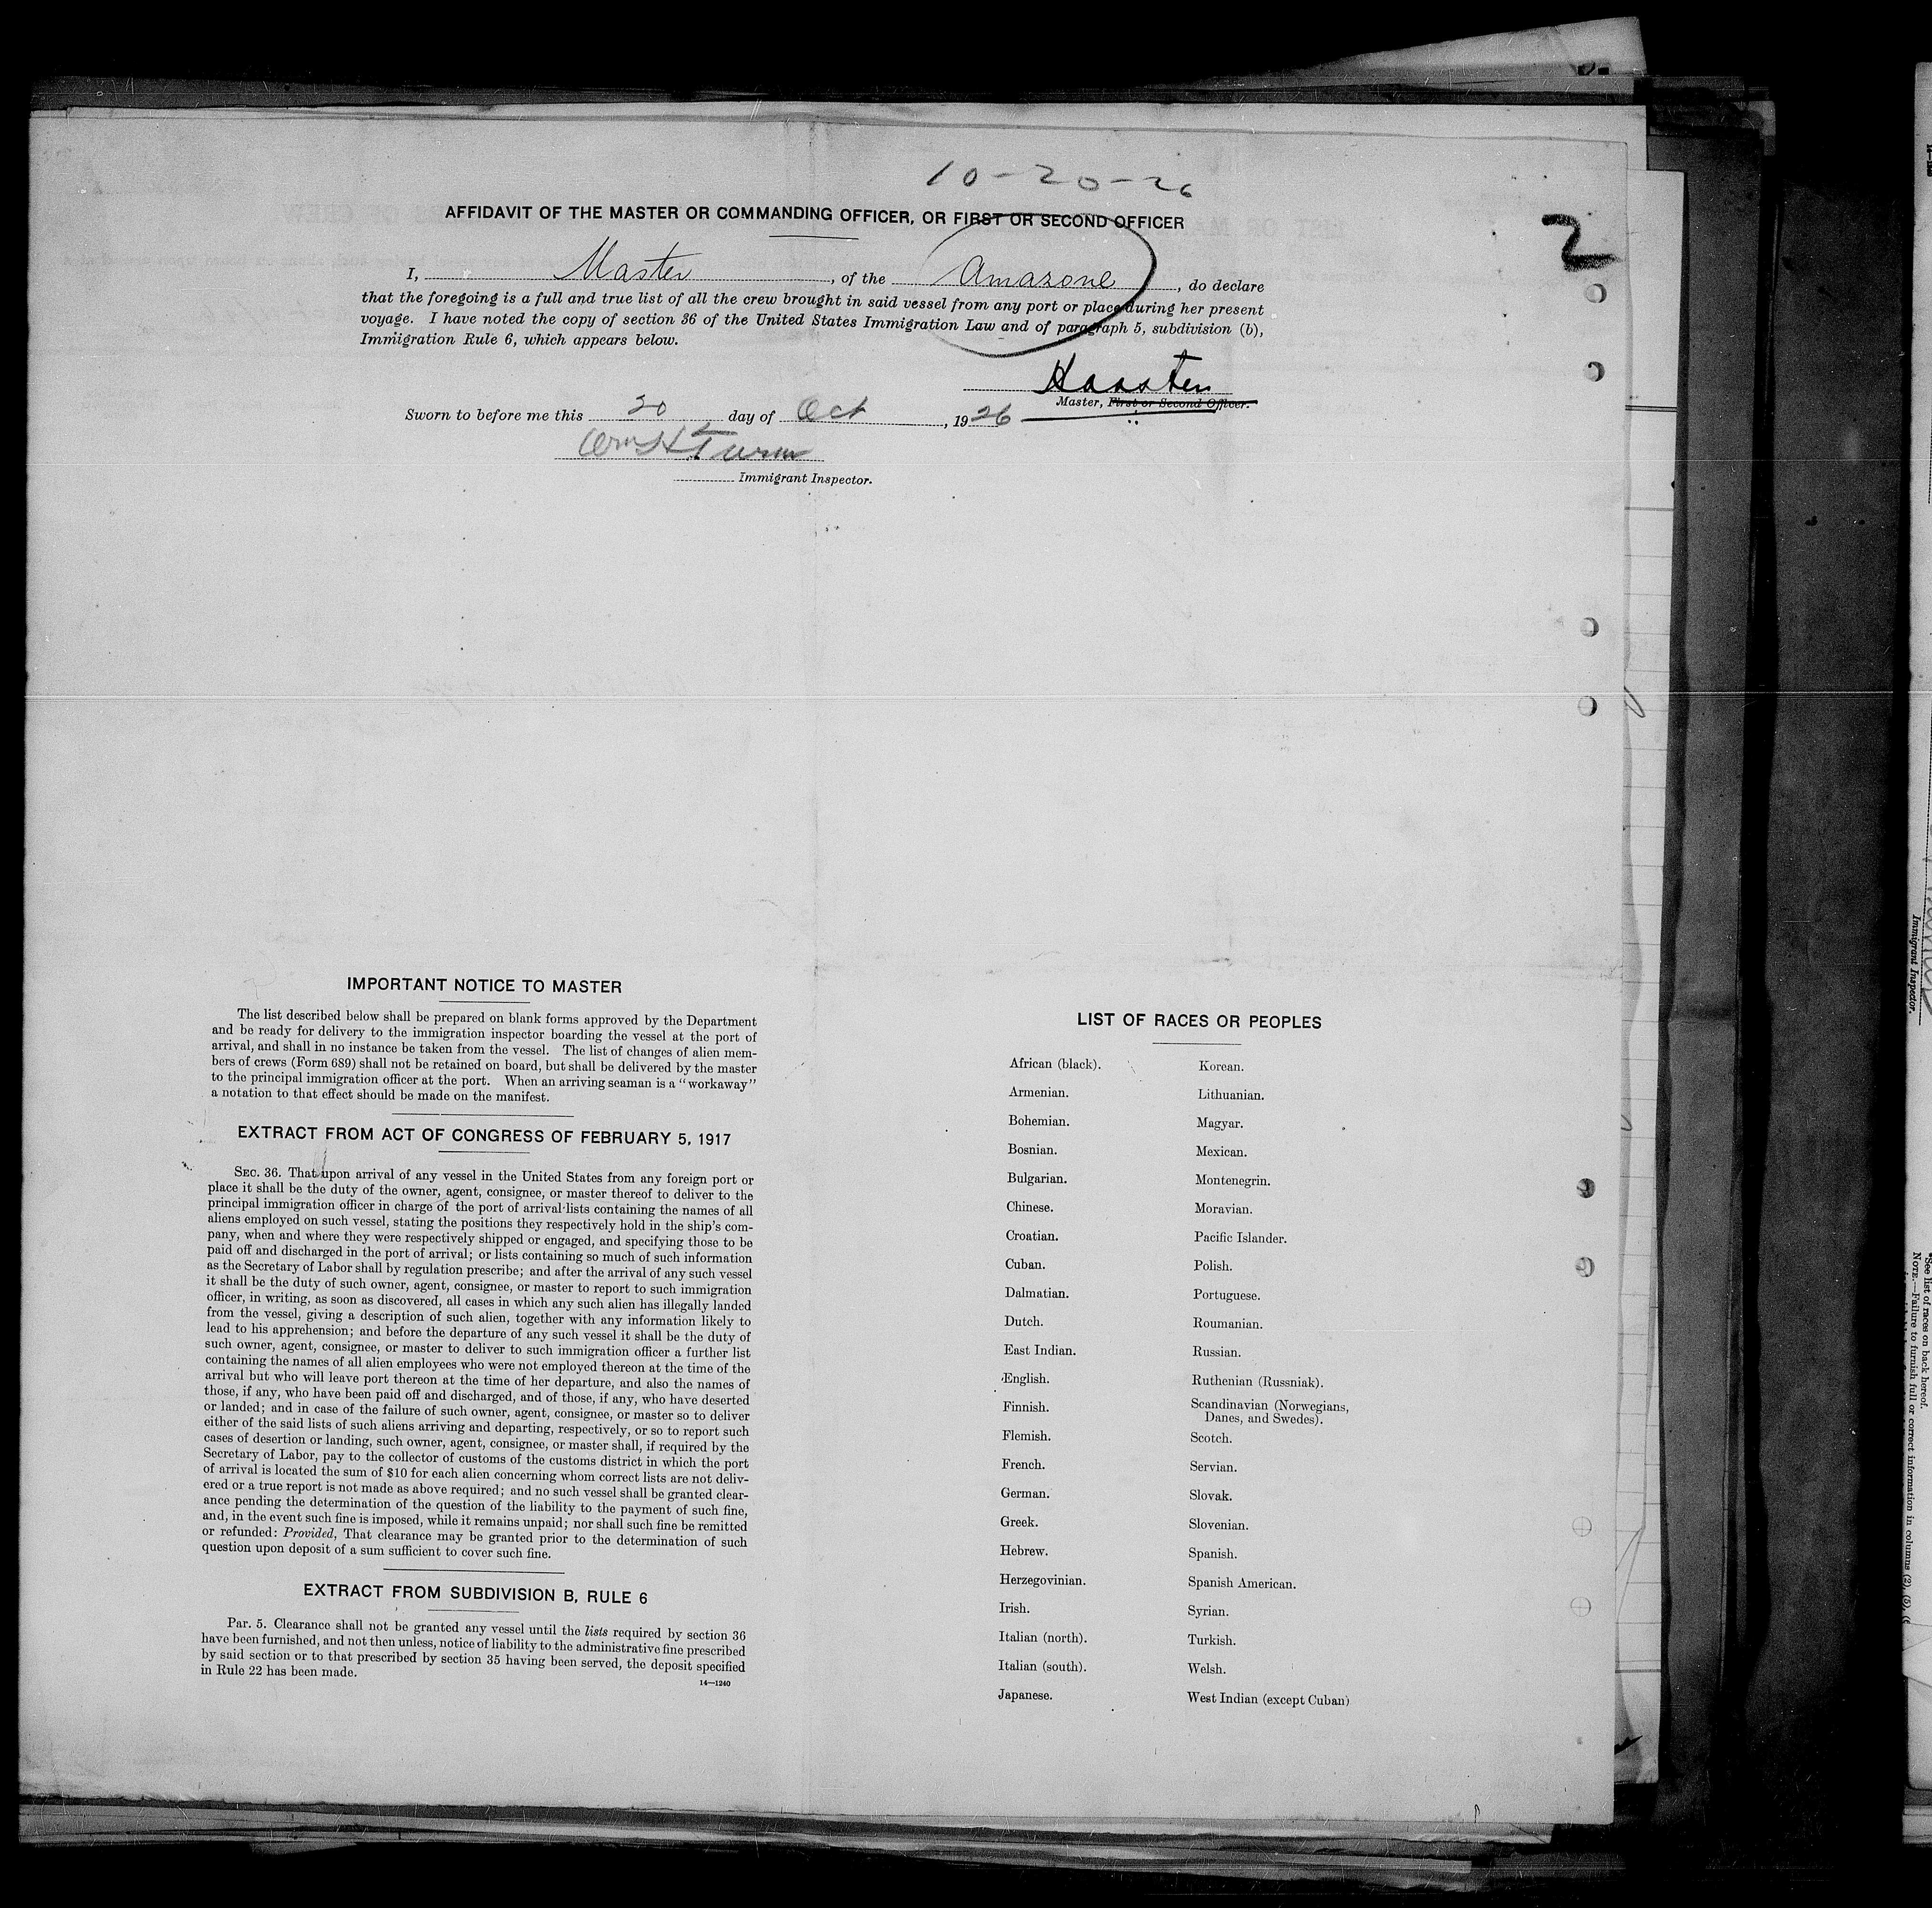 10-20-26
2
AFFIDAVIT OF THE MASTER OR COMMANDING OFFICER, OR FIRST OR SECOND OFFICER
I, Master, of the Amazone, do declare
that the foregoing is a full and true list of all the crew brought in said vessel from any port or place during her present
voyage. I have noted the copy of section 36 of the United States Immigration Law and of paragraph 5, subdivision (b),
Immigration Rule 6, which appears below.
Haasten
Master, First or Second Officer.
Sworn to before me this 20 day of Oct, 1926
Immigrant Inspector.
IMPORTANT NOTICE TO MASTER
The list described below shall be prepared on blank forms approved by the Department
and be ready for delivery to the immigration inspector boarding the vessel at the port of
arrival, and shall in no instance be taken from the vessel. The list of changes of alien mem-
bers of crews (Form 689) shall not be retained on board, but shall be delivered by the master
to the principal immigration officer at the port. When an arriving seaman is a "workaway"
a notation to that effect should be made on the manifest.
EXTRACT FROM ACT OF CONGRESS OF FEBRUARY 5, 1917
SEC. 36. That upon arrival of any vessel in the United States from any foreign port or
place it shall be the duty of the owner, agent, consignee, or master thereof to deliver to the
principal immigration officer in charge of the port of arrival lists containing the names of all
aliens employed on such vessel, stating the positions they respectively hold in the ship's com-
pany, when and where they were respectively shipped or engaged, and specifying those to be
paid off and discharged in the port of arrival; or lists containing so much of such information
as the Secretary of Labor shall by regulation prescribe; and after the arrival of any such vessel
it shall be the duty of such owner, agent, consignee, or master to report to such immigration
officer, in writing, as soon as discovered, all cases in which any such alien has illegally landed
from the vessel, giving a description of such alien, together with any information likely to
lead to his apprehension; and before the departure of any such vessel it shall be the duty of
such owner, agent, consignee, or master to deliver to such immigration officer a further list
containing the names of all alien employees who were not employed thereon at the time of the
arrival but who will leave port thereon at the time of her departure, and also the names of
those, if any, who have been paid off and discharged, and of those, if any, who have deserted
or landed; and in case of the failure of such owner, agent, consignee, or master so to deliver
either of the said lists of such aliens arriving and departing, respectively, or so to report such
cases of desertion or landing, such owner, agent, consignee, or master shall, if required by the
Secretary of Labor, pay to the collector of customs of the customs district in which the port
of arrival is located the sum of $10 for each alien concerning whom correct lists are not deliv-
ered or a true report is not made as above required; and no such vessel shall be granted clear-
ance pending the determination of the question of the liability to the payment of such fine,
and, in the event such fine is imposed, while it remains unpaid; nor shall such fine be remitted
or refunded: Provided, That clearance may be granted prior to the determination of such
question upon deposit of a sum sufficient to cover such fine.
EXTRACT FROM SUBDIVISION B, RULE 6
Par. 5. Clearance shall not be granted any vessel until the lists required by section 36
have been furnished, and not then unless, notice of liability to the administrative fine prescribed
by said section or to that prescribed by section 35 having been served, the deposit specified
in Rule 22 has been made.
14—1240
LIST OF RACES OR PEOPLES
African (black).
Armenian.
Bohemian.
Bosnian.
Bulgarian.
Chinese.
Croatian.
Cuban.
Dalmatian.
Dutch.
East Indian.
English.
Finnish.
Flemish.
French.
German.
Greek.
Hebrew.
Herzegovinian.
Irish.
Italian (north).
Italian (south).
Japanese.
Korean.
Lithuanian.
Magyar.
Mexican.
Montenegrin.
Moravian.
Pacific Islander.
Polish.
Portuguese.
Roumanian.
Russian.
Ruthenian (Russniak).
Scandinavian (Norwegians,
Danes, and Swedes).
Scotch.
Servian.
Slovak.
Slovenian.
Spanish.
Spanish American.
Syrian.
Turkish.
Welsh.
West Indian (except Cuban)
Immigrant Inspector.
*See list of races on back hereof.
NOTE.—Failure to furnish full or correct information in columns (2), (5), (6